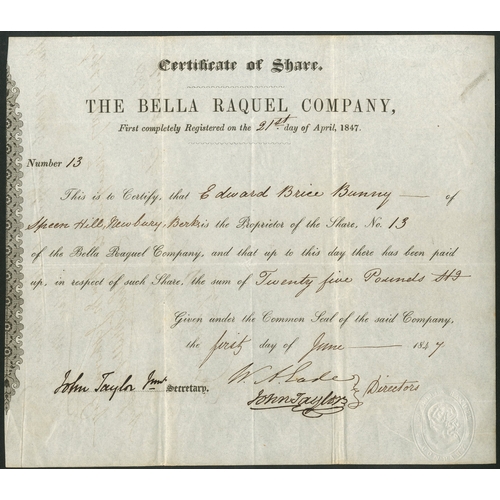 Certificate of Share.
THE BELLA RAQUEL COMPANY,
First completely Registered on the 21st day of April, 1847.
Number 13
This is to Certify, that Edward Brice Bunny of
Speen Hill, Newbury, Berks is the Proprietor of the Share, No. 13
of the Bella Raquel Company, and that up to this day there has been paid
up, in respect of such Share, the sum of Twenty five Pounds Stg
Given under the Common Seal of the said Company,
the first day of June 1847
John Taylor Junr Secretary.
W A
John Taylor
Directors